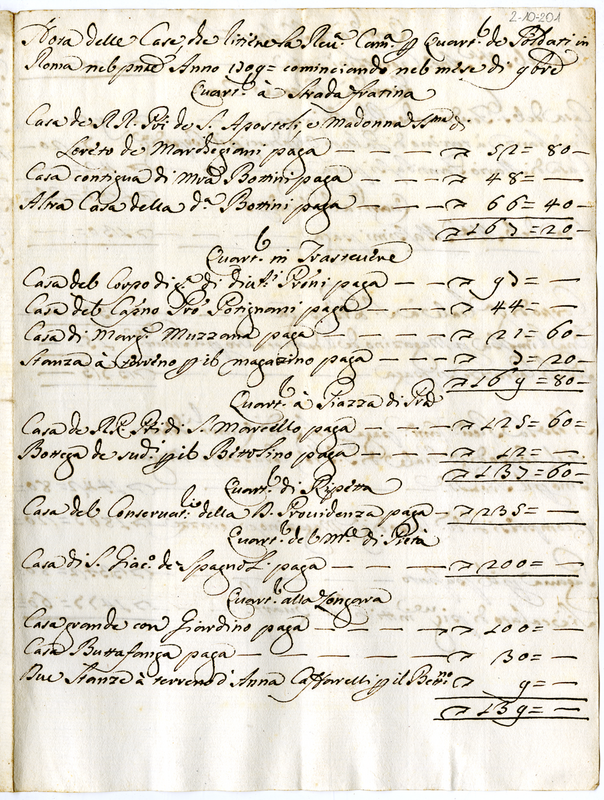 2-10-201
Nota delle Case, che tiene la Reu.ª Cam.ª p Quart.ʳⁱ de Soldati in
Roma nel pñte Anno 1709= cominciando nel mese di 9bre
Quart.ʳᵉ à Strada fratina
Casa de RR. PPi de S. Apostoli, e Madonna SSma di
Loreto de Marchegiani paga — — — 52= 80 —
Casa contigua di Bottini paga — — — 48= —
Altra Casa della d.ª Bottini paga — — 66= 40 —
167=20 —
Quart.ʳᵉ in Trastevere
Casa del Corpo di paga — — 93= —
Casa del Cap.no paga — — — 44= —
Casa di Marg.ª Muzzana paga — — — 21= 60 —
Stanza à terreno p il magazino paga — — — =20 —
169=80 —
Quart.ʳᵉ à Piazza di
Casa de RR. PPi di S. Marcello paga — — — 125= 60 —
Bottega de sud.ⁱ p il Bettolino paga — — — 12= —
137=60 —
Quart.ʳᵉ di Ripetta
Casa del Conservat.ʳⁱᵒ della D. Providenza paga — 235= —
Quart.ʳᵉ del M.ᵗᵉ di Pietà
Casa di S. Giac.º de Spagnoli paga — — — 200= —
Quart.ʳᵉ alla Longara
Casa grande con Giardino paga — — — 100= —
Casa Buttafanga paga — — — — 30= —
Due Stanze à terreno d'Anna Caffarelli p il Bett.ⁿᵒ 9= —
139= —